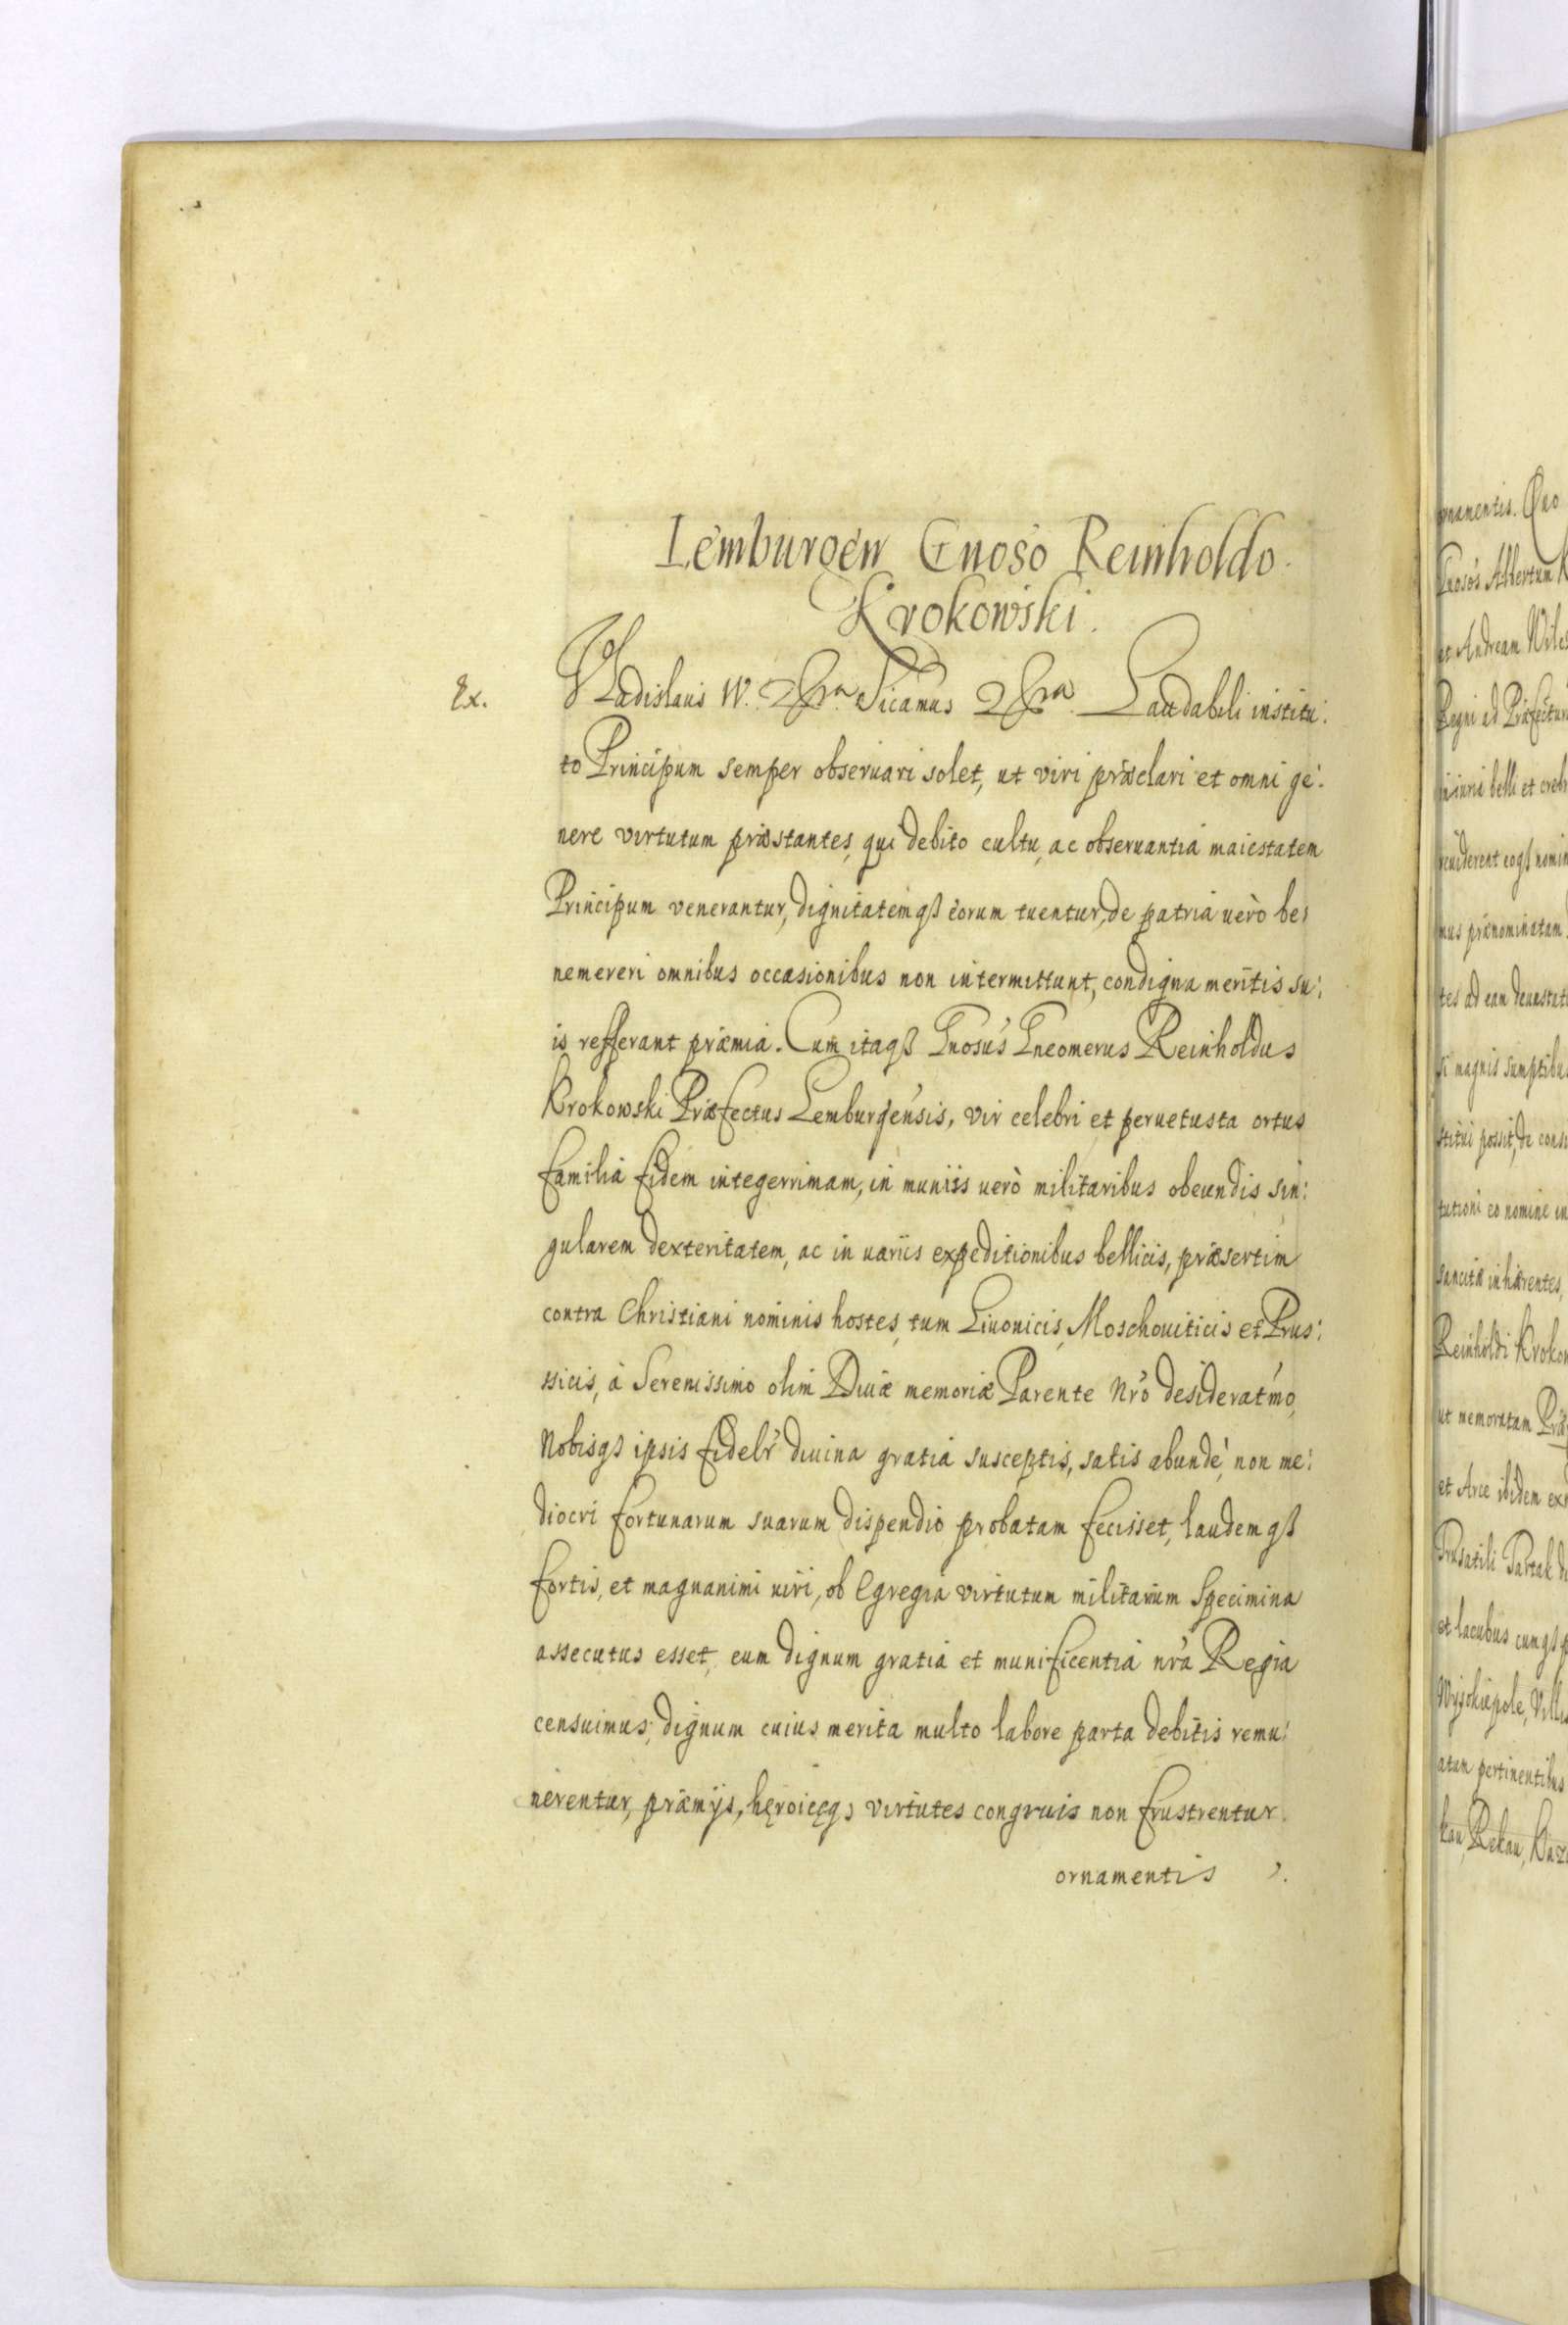 Lemburgen Gnoso Reinholdo
Krokowski.
Ex.
Vladislaus IV. &ra Sicamus &ra. Laudabili institu:
to Principum semper obseruari solet, ut viri præclari et omni ge:
nere virtutum præstantes, qui debito cultu, ac obseruantia maiestatem
Principum venerantur, dignitatemqз eorum tuentur, de patria uerò be:
nemereri omnibus occasionibus non intermittunt, condigna meritis su:
is refferant præmia. Cum itaqз Gnosus Gneomerus Reinholdus
Krokowski Præfectus Lemburgensis, vir celebri et peruetusta ortus
familia fidem integerrimam, in muniis uerò militaribus obeundis sin:
gularem dexteritatem, ac in uariis expeditionibus bellicis, præsertim
contra Christiani nominis hostes, tum Liuonicis, Moschouiticis et Prus:
sicis, à Serenissimo olim Diuæ memoriæ Parente Nrõ desideratmo,
Nobisqз ipsis fidelr diuina gratia susceptis, satis abundè, non me:
diocri fortunarum suarum dispendio probatam fecisset, laudemqз
fortis, et magnanimi uiri, ob Egregia virtutum militarium Specimina
assecutus esset, eum dignum gratia et munificentia nrã Regia
censuimus; dignum cuius merita multo labore parta debitis remu:
nerentur, præmijs, hęroicęqз virtutes congruis non frustrentur.
ornamentis
ornamentis. Quo
Gnosos Albertum K
et Andream
Regni ad Præfectur
iniuria belli et creb
reuiderent eoqз nomin
mus prænominatam
tes ad eam deuastat
si magnis sumptibus
stitui possit, de cons
tutioni eo nomine in
sancitæ inhærentes,
Reinholdi Krokow
ut memoratam Præf
et Arce ibidem ex
Tartak d
et lacubus cumqз p
Wysokiepole, Villis
atum pertinentibus
kau, Rekau,